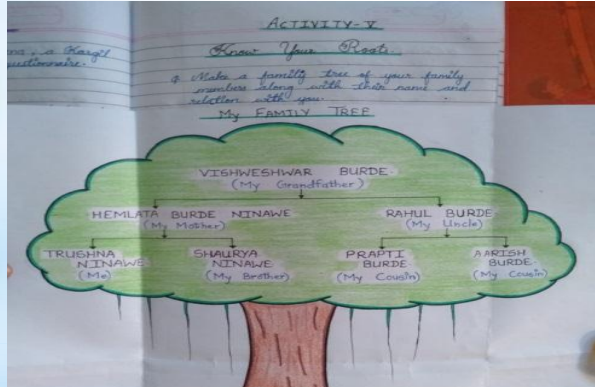 ACTIVITY-V
Know Your Roots.
a Kargil
questionnaire.
Q Make a family tree of your family
members along with their name and
relation with you.
MY FAMILY TREE
VISHWESHWAR BURDE
(My Grandfather)
HEMLATA BURDE NINAWE
(My Mother)
RAHUL BURDE
(My Uncle)
TRUSHNA
NINAWE
(Me)
SHAURYA
NINAWE
(My Brother)
PRAPTI
BURDE
(My Cousin)
AARISH
BURDE
(My Cousin)